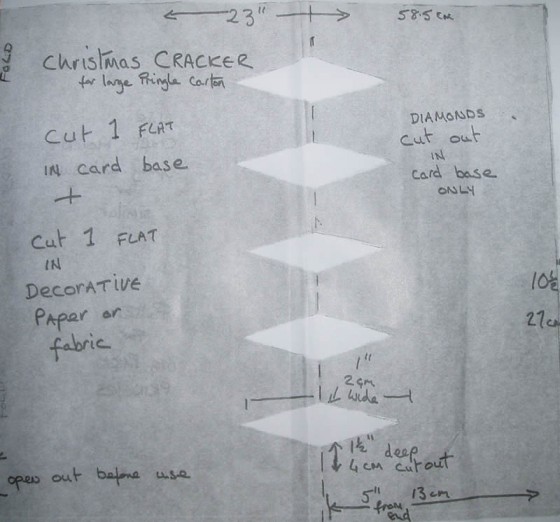 23" 58.5 cm
FOLD
Christmas CRACKER
for large Pringle Carton
Cut 1 FLAT
IN card base
+
Cut 1 FLAT
IN
DECORATIVE
PAPER or
fabric
DIAMONDS
Cut out
IN
card base
ONLY
10½"
27cm
1"
2cm
wide
1½" deep
4cm cutout
open out before use
5" 13cm
from
end